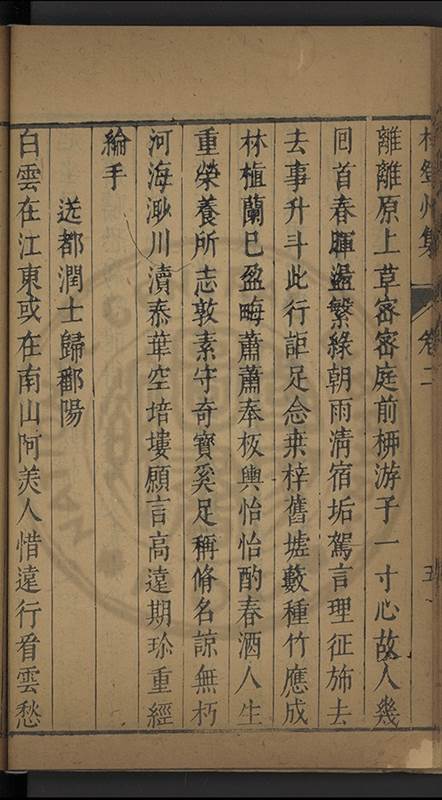 離離原上草密密庭前柳游子一寸心故人幾
回首春暉藹繁綠朝雨清宿垢駕言理征斾去
去事升斗此行詎足念桒梓舊墟藪種竹應成
林植蘭已盈畮蕭蕭奉板輿怡怡酌春酒人生
重榮養所志敦素守奇寶奚足稱脩名諒無朽
河海泖川瀆泰華空培塿願言高遠期珎重經
綸手
送都潤士歸鄱陽
白雲在江東或在南山阿羙人惜遠行看雲愁
集 卷二
五